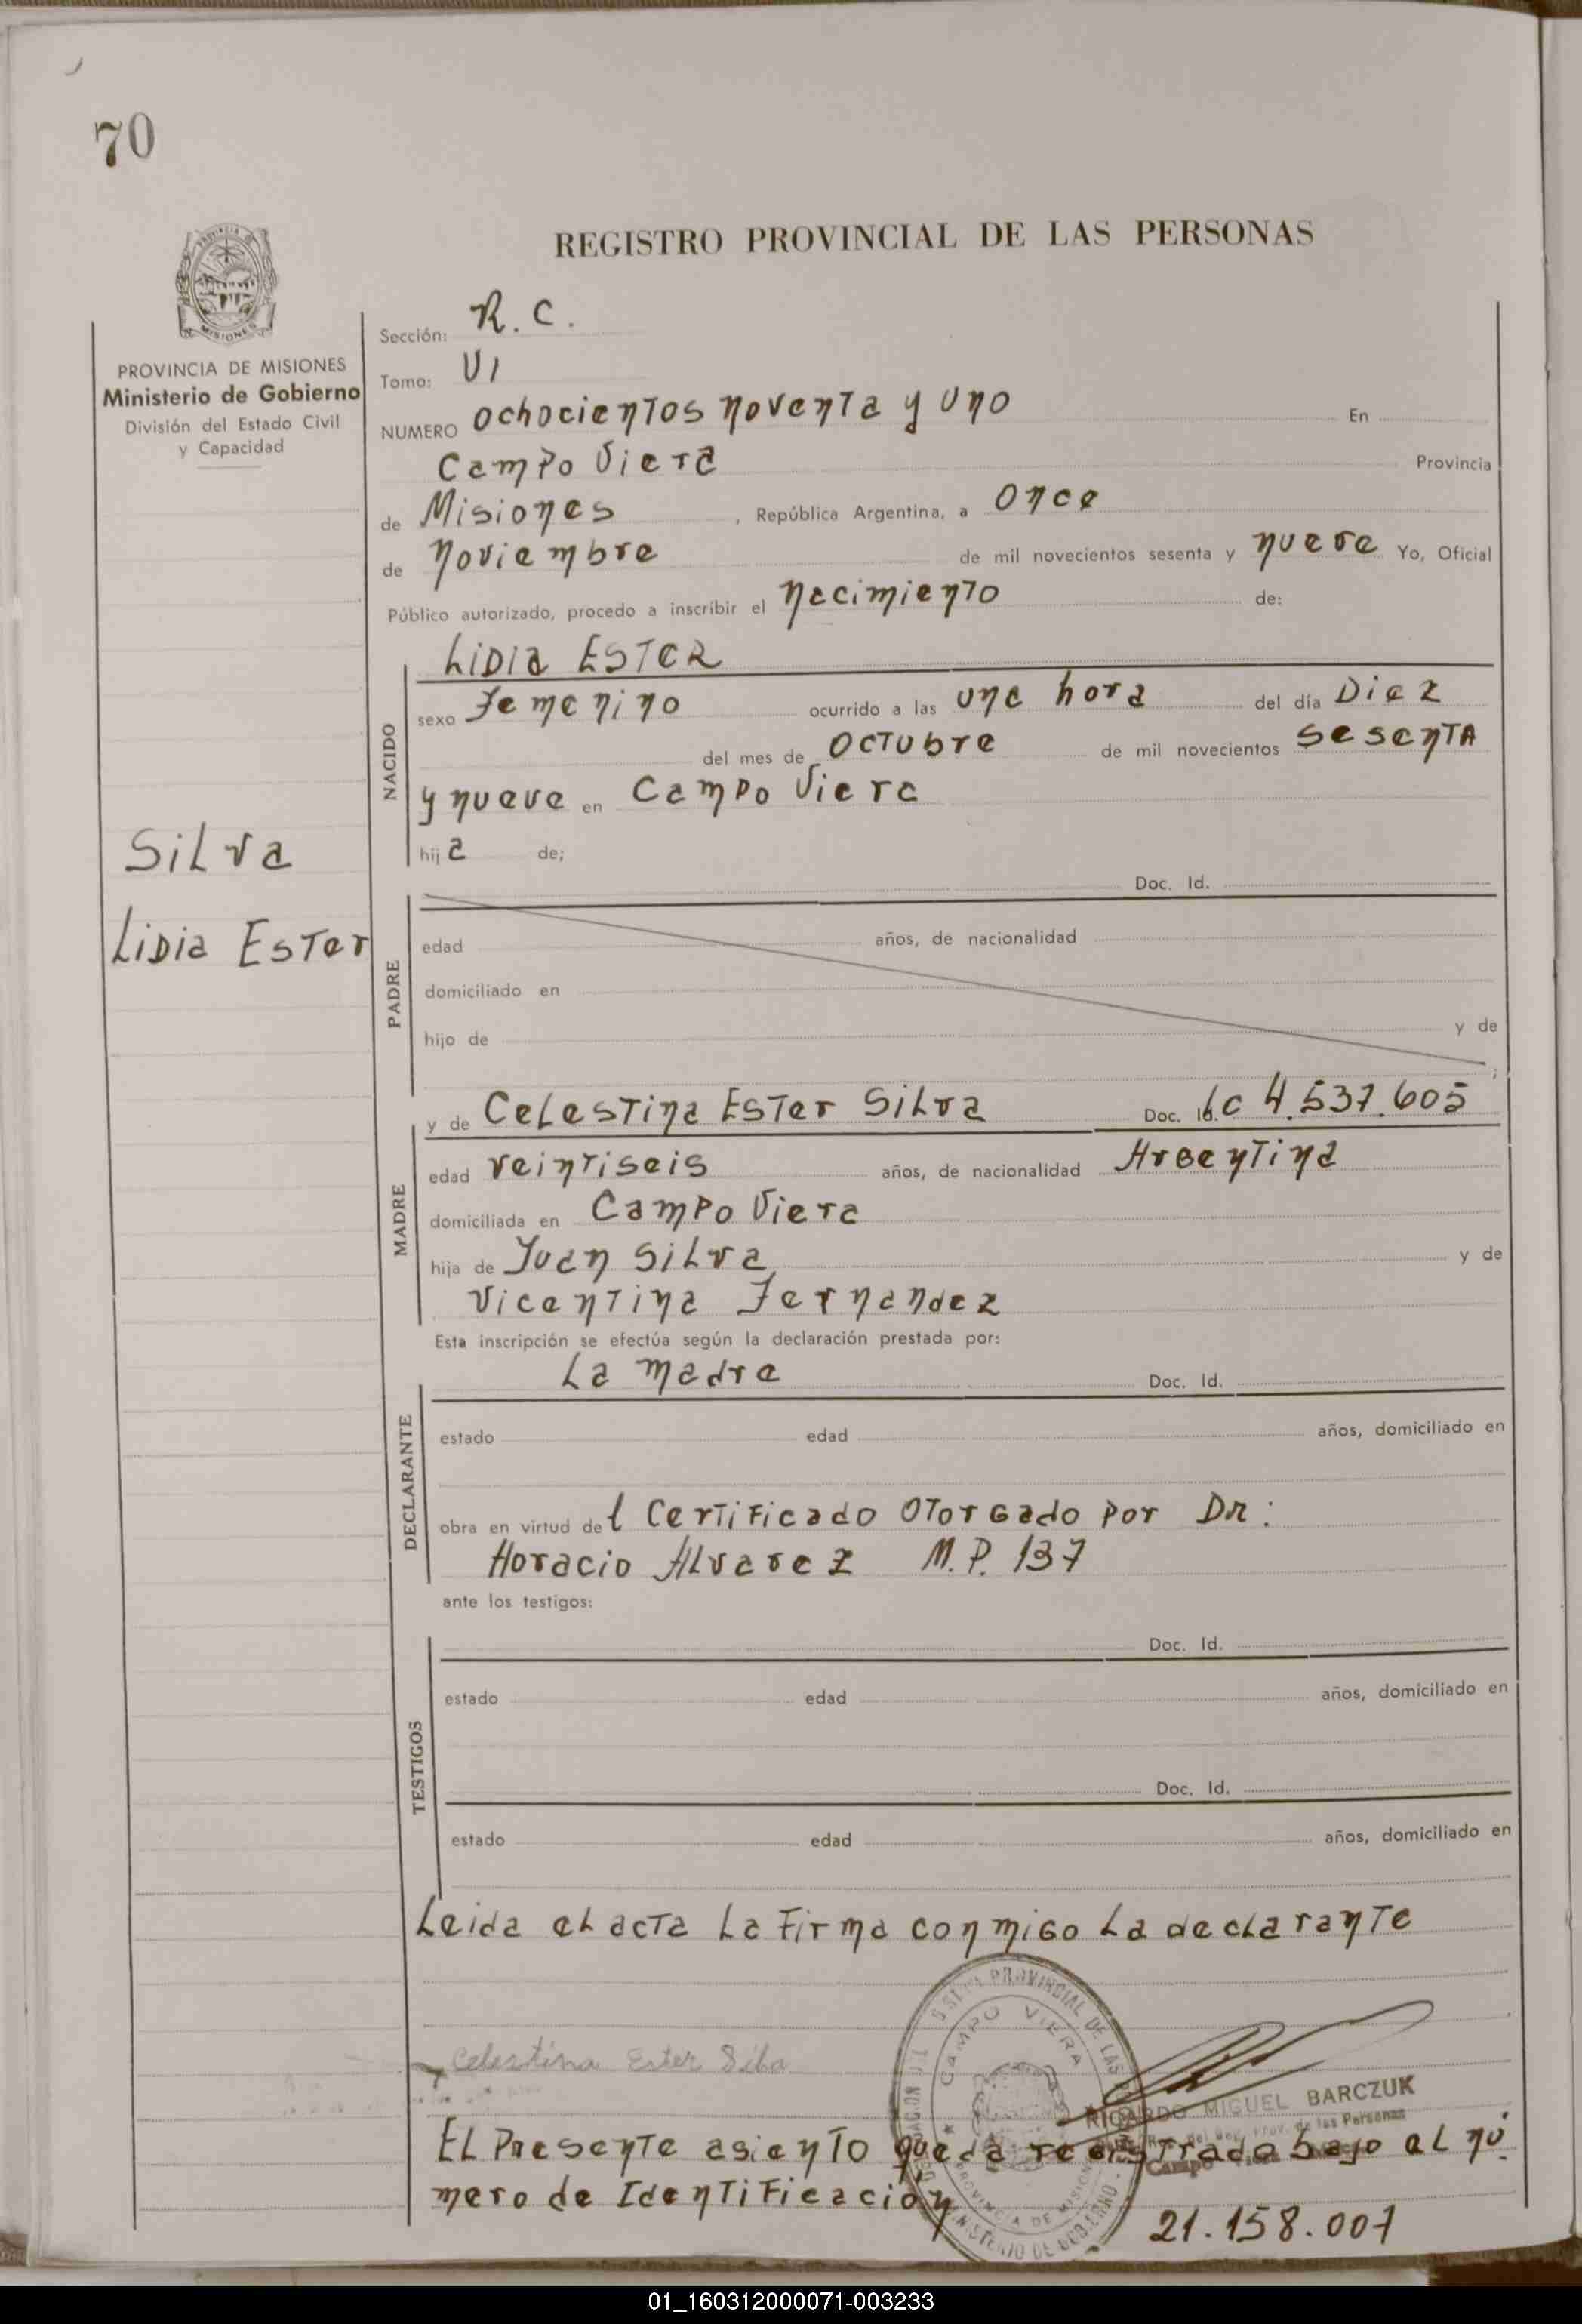 70
REGISTRO PROVINCIAL DE LAS PERSONAS
MISIONES
PROVINCIA DE MISIONES
Ministerio de Gobierno
División del Estado Civil
y Capacidad
Sección: R. C.
Tomo: VI
NUMERO ochocientos noventa y uno En
Campo Viera Provincia
de Misiones, República Argentina, a once
de noviembre de mil novecientos sesenta y nueve Yo, Oficial
Público autorizado, procedo a inscribir el nacimiento de:
LIDIA ESTER
NACIDO
sexo femenino ocurrido a las una hora del día Diez
del mes de octubre de mil novecientos sesenta
y nueve en Campo Viera
hija de;
Silva
Lidia Ester
PADRE
Doc. Id.
edad años, de nacionalidad
domiciliado en
hijo de y de
;
MADRE
y de Celestina Ester Silva Doc. Id. LC 4.537.605
edad veintiseis años, de nacionalidad Argentina
domiciliada en Campo Viera
hija de Juan Silva y de
Vicentina Fernandez
Esta inscripción se efectúa según la declaración prestada por:
DECLARANTE
La madre Doc. Id.
estado edad años, domiciliado en
obra en virtud del Certificado otorgado por Dr:
Horacio Alvarez M.P. 137
ante los testigos:
TESTIGOS
Doc. Id.
estado edad años, domiciliado en
Doc. Id.
estado edad años, domiciliado en
Leida el acta la firma conmigo la declarante
PROVINCIAL DE LAS
CAMPO VIERA
PROVINCIA DE MISIONES
MINISTERIO DE GOBIERNO
Celestina Ester Silva
RICARDO MIGUEL BARCZUK
Prov. de las Personas
Campo Viera
El Presente asiento queda registrado bajo el nú
mero de Identificación
21.158.007
01_160312000071-003233